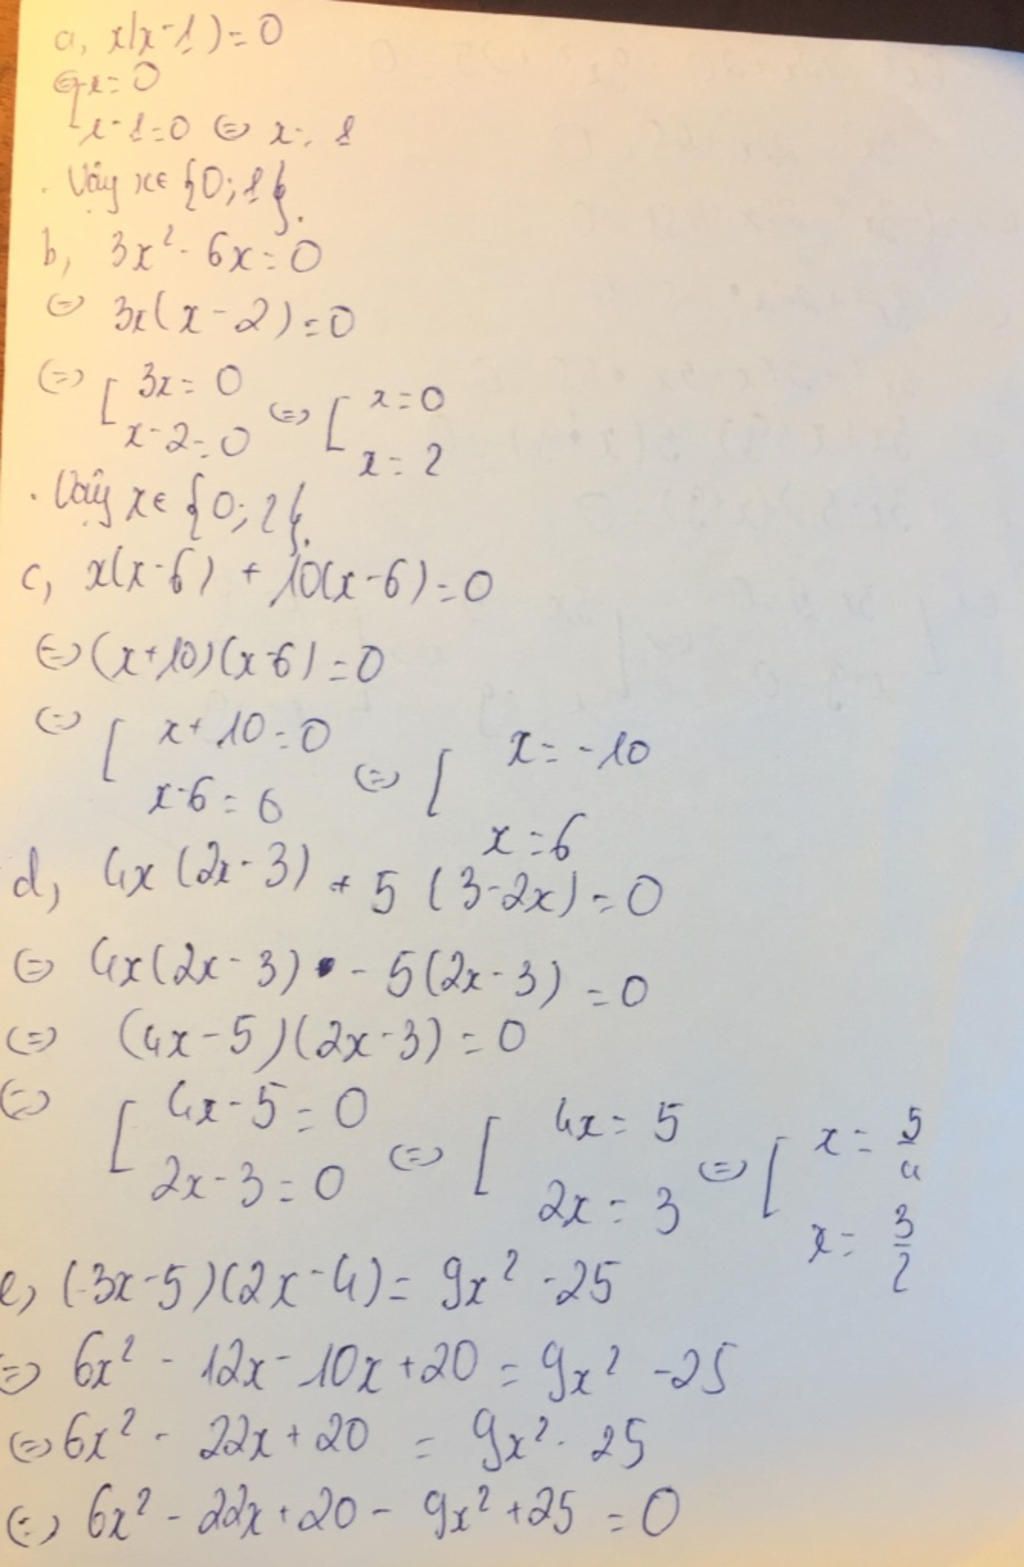 a, x(x-1)=0
⇔ [ x=0
x-1=0 ⇔ x=1
. Vậy x∈ {0;1}.
b, 3x² - 6x = 0
⇔ 3x(x-2)=0
⇔ [ 3x=0 ⇔ [ x=0
x-2=0 x=2
. Vậy x∈ {0;2}.
c, x(x-6) + 10(x-6)=0
⇔ (x+10)(x-6)=0
⇔ [ x+10=0 ⇔ [ x=-10
x-6=6 x=6
d, 4x(2x-3) + 5(3-2x)=0
⇔ 4x(2x-3) - 5(2x-3)=0
⇔ (4x-5)(2x-3)=0
⇔ [ 4x-5=0 ⇔ [ 4x=5 ⇔ [ x=5/4
2x-3=0 2x=3 x=3/2
e, (3x-5)(2x-4)= 9x² - 25
⇔ 6x² - 12x - 10x + 20 = 9x² - 25
⇔ 6x² - 22x + 20 = 9x² - 25
⇔ 6x² - 22x + 20 - 9x² + 25 = 0